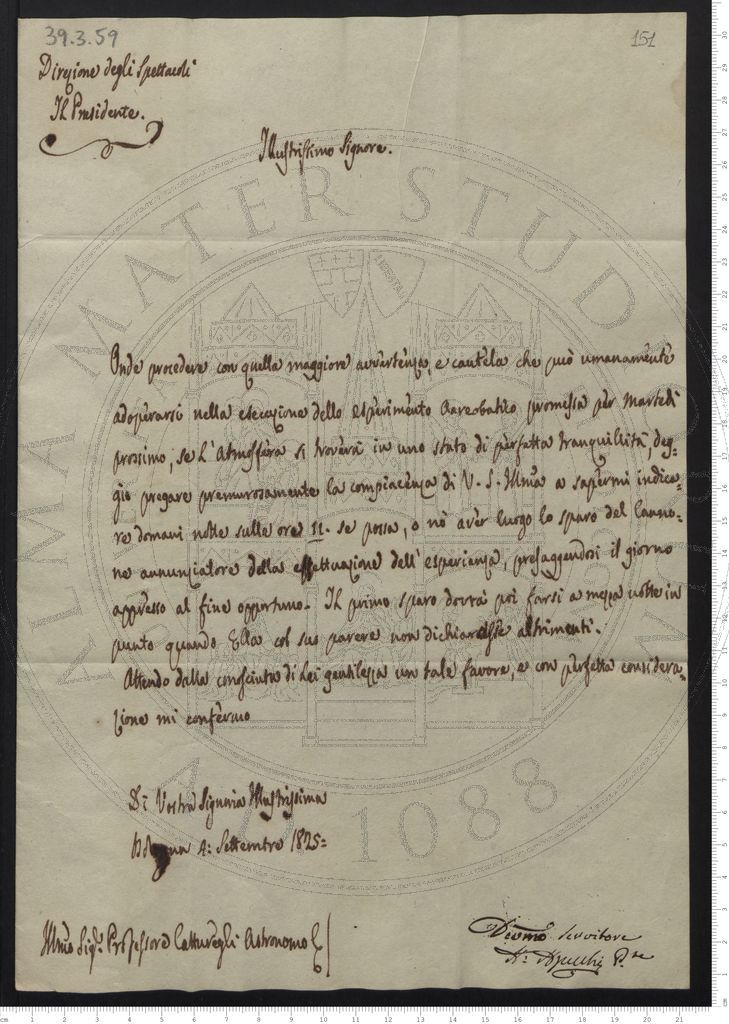 39.3.59
151
Direzione degli Spettacoli
Il Presidente.
Illustrissimo Signore.
Onde procedere con quella maggiore avvertenza, e cautela che può umanamente
adoperarsi nella esecuzione dello esperimento Aareobatico promessa per Martedì
prossimo, se l'Atmosfera si troverà in uno stato di perfetta tranquillità, deg-
gio pregare premurosamente la compiacenza di V. S. Illma a sapermi indica-
re domani notte sulle ore 11. se possa, o nò aver luogo lo sparo del Canno-
ne annunziatore della effettuazione dell'esperienza, presaggendosi il giorno
appresso al fine opportuno. Il primo sparo dovrà poi farsi a mezza notte in
punto quando Ella col suo parere non dichiarasse altrimenti.
Attendo dalla consciuta di Lei gentilezza un tale favore, e con perfetta considera-
zione mi confermo
Di Vostra Signoria Illustrissima
Bologna 4: Settembre 1825=
Illmo Sigr. Professore Catturegli Astronomo
Devmo Servitore
ALMA MATER STUDIORUM
A.D. 1088